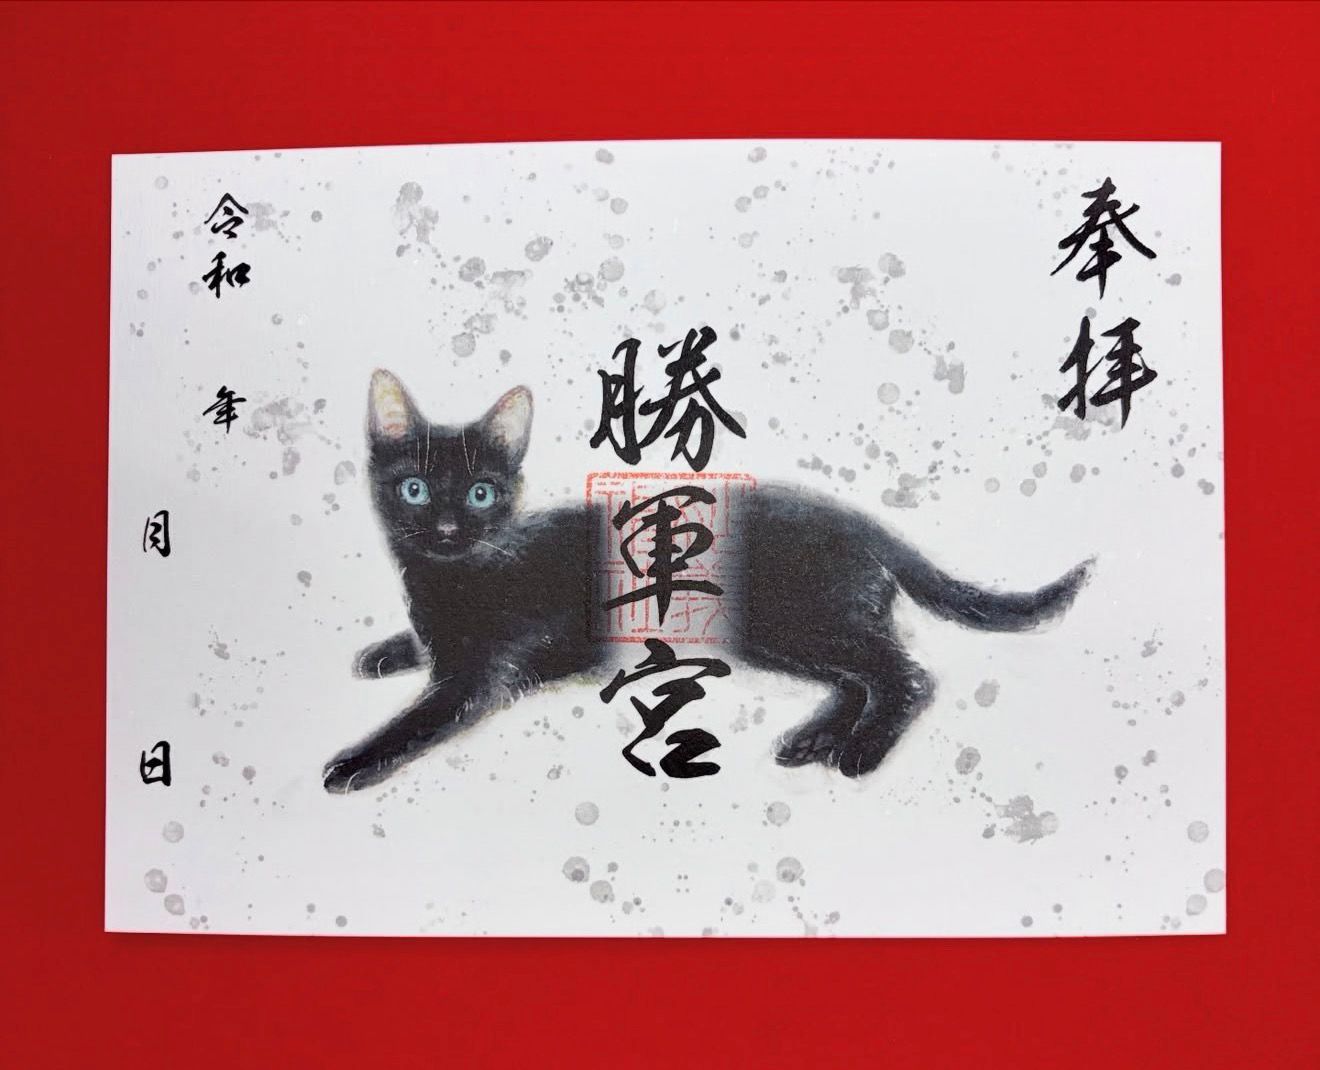 奉拝
勝軍宮
令和　年
月　日